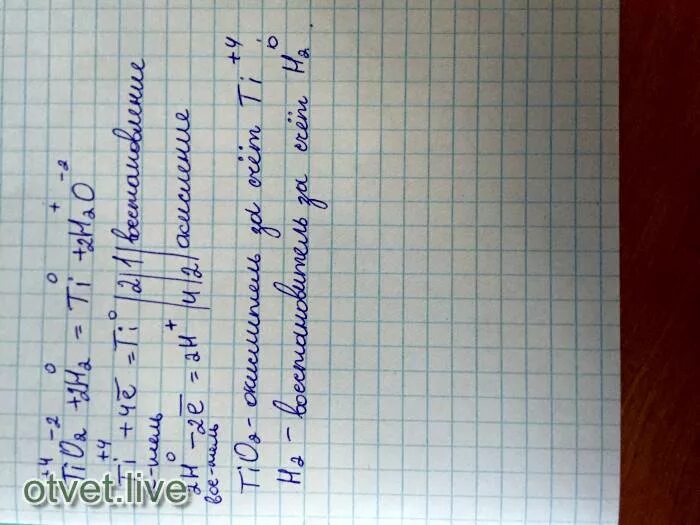 +4 -2 0 0 + -2
TiO₂ + 2H₂ = Ti + 2H₂O
Ti⁺⁴ + 4ē = Ti⁰ |2|1| восстановление
-тель
2H⁰ - 2ē = 2H⁺ |4|2| окисление
вос-тель
TiO₂ - окислитель за счёт Ti⁺⁴
H₂ - восстановитель за счёт H₂⁰.
otvet.live